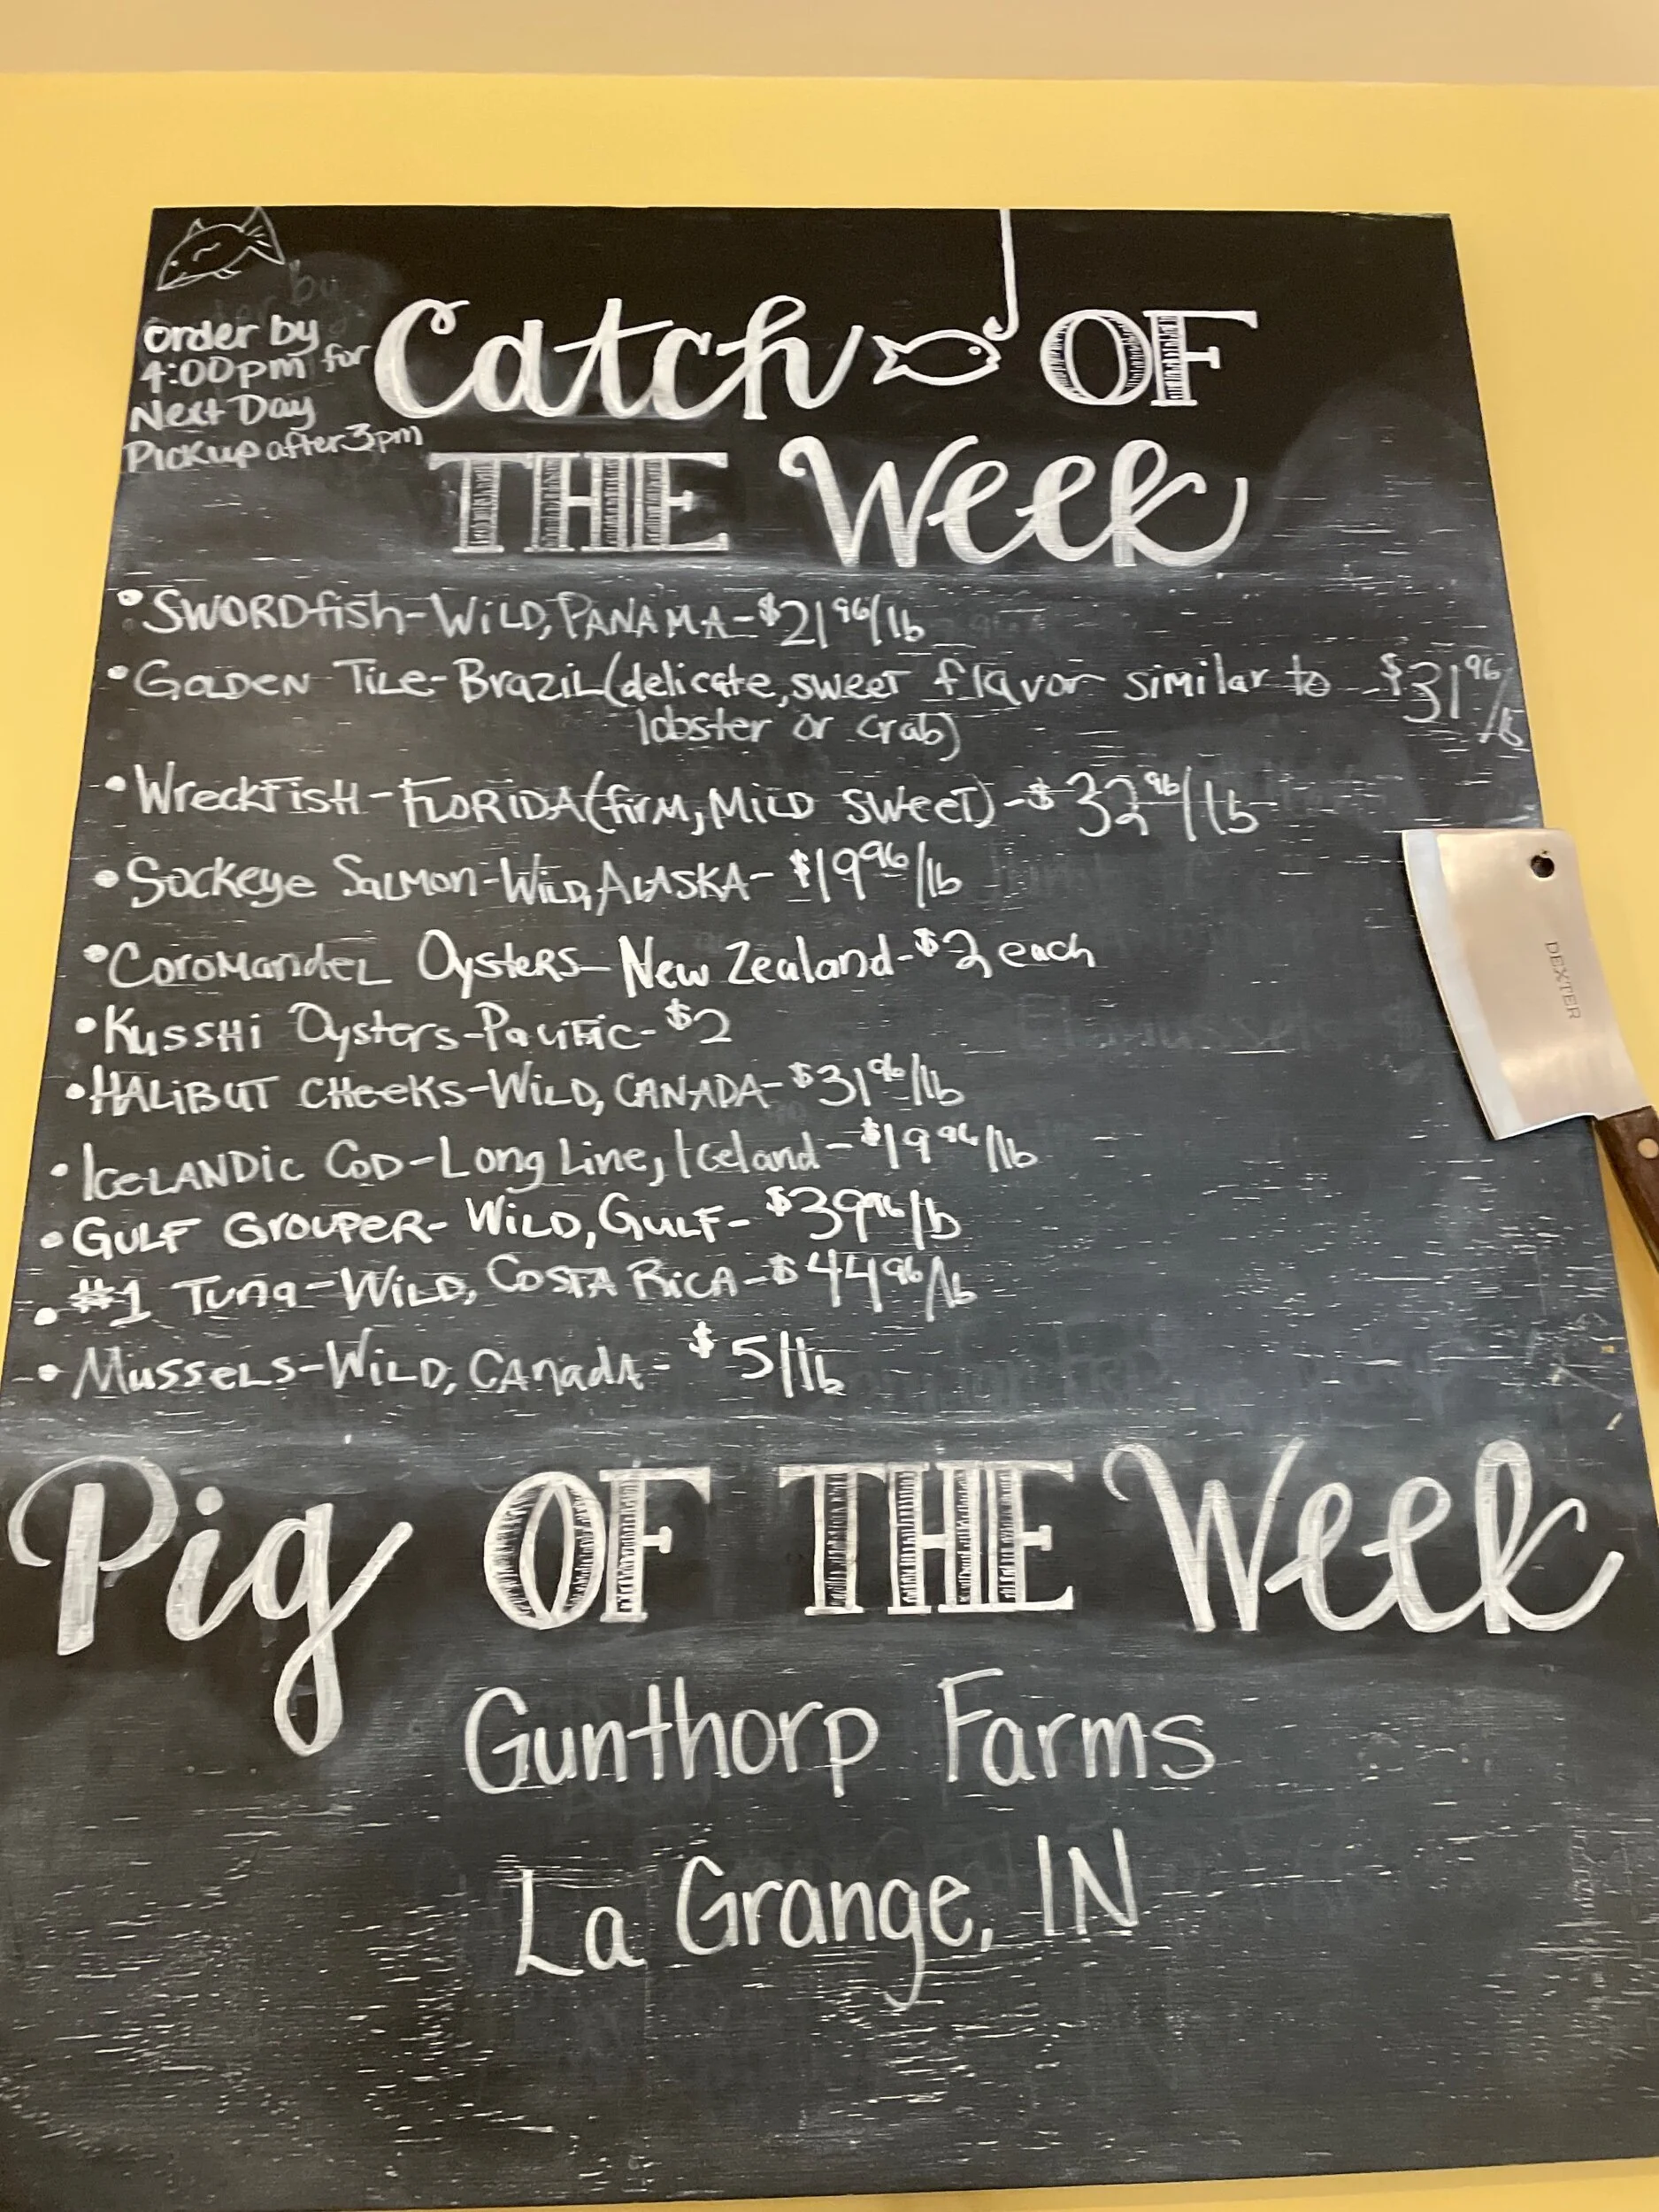 order by
4:00pm for
Next Day
Pickup after 3pm
Catch OF
THE Week
• SWORDfish-WiLD, PANAMA-$21 96/lb
• GOLDEN TiLE-BraziL (delicate, sweet flavor similar to -$31 96/lb
lobster or crab)
• WreckFisH-FLORIDA (firm, MiLD sweet)-$32 96/lb
• Sockeye SaLMon-WiLD, ALASKA-$19 96/lb
• CoroMandeL Oysters-New Zealand-$2 each
• KussHi Oysters-Pacific-$2
• HALiBUT CHeeKs-WiLD, CANADA-$31 96/lb
• IceLANDic CoD-Long Line, Iceland-$19 96/lb
• GULF GrouPeR-WiLD, GULF-$39 96/lb
• #1 Tuna-WiLD, COSTA RiCA-$44 96/lb
• MusseLs-WiLD, CanadA-$5/lb
DEXTER
Pig OF THE Week
Gunthorp Farms
La Grange, IN